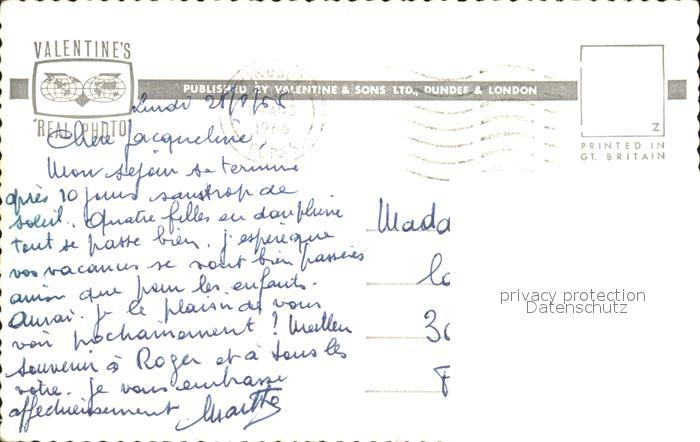 VALENTINE'S
"REAL PHOTO"
PUBLISHED BY VALENTINE & SONS LTD., DUNDEE & LONDON
1966
Z
PRINTED IN
GT. BRITAIN
Lundi
Chère Jacqueline,
Mon séjour se termine
après 10 jours sans trop de
soleil. Quatre filles en dauphine
tout se passe bien. j'espère que
vos vacances se sont bien passées
ainsi que pour les enfants.
Aurai-je le plaisir de vous
voir prochainement ? Meilleur
souvenir à Roger et à tous les
votre. je vous embrasse
affectueusement Marthe
Mada
3
F
privacy protection
Datenschutz